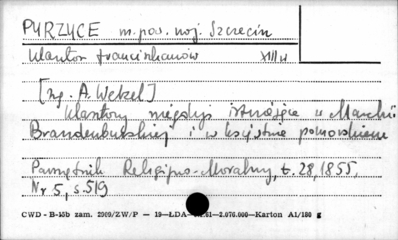 PYRZYCE m. pow. woj. Szczecin
klasztor franciszkanów XIII w
[zg. A. Wetzel]
klasztory niegdyś istniejące w Marchii
Brandenburskiej i w księstwie pomorskiem
Pamiętnik Religijno-Moralny, t. 28, 1855,
Nr 5, s. 519
CWD - B-15b zam. 2909/ZW/P — 19—ŁDA— .61—2.076.000—Karton A1/180 g